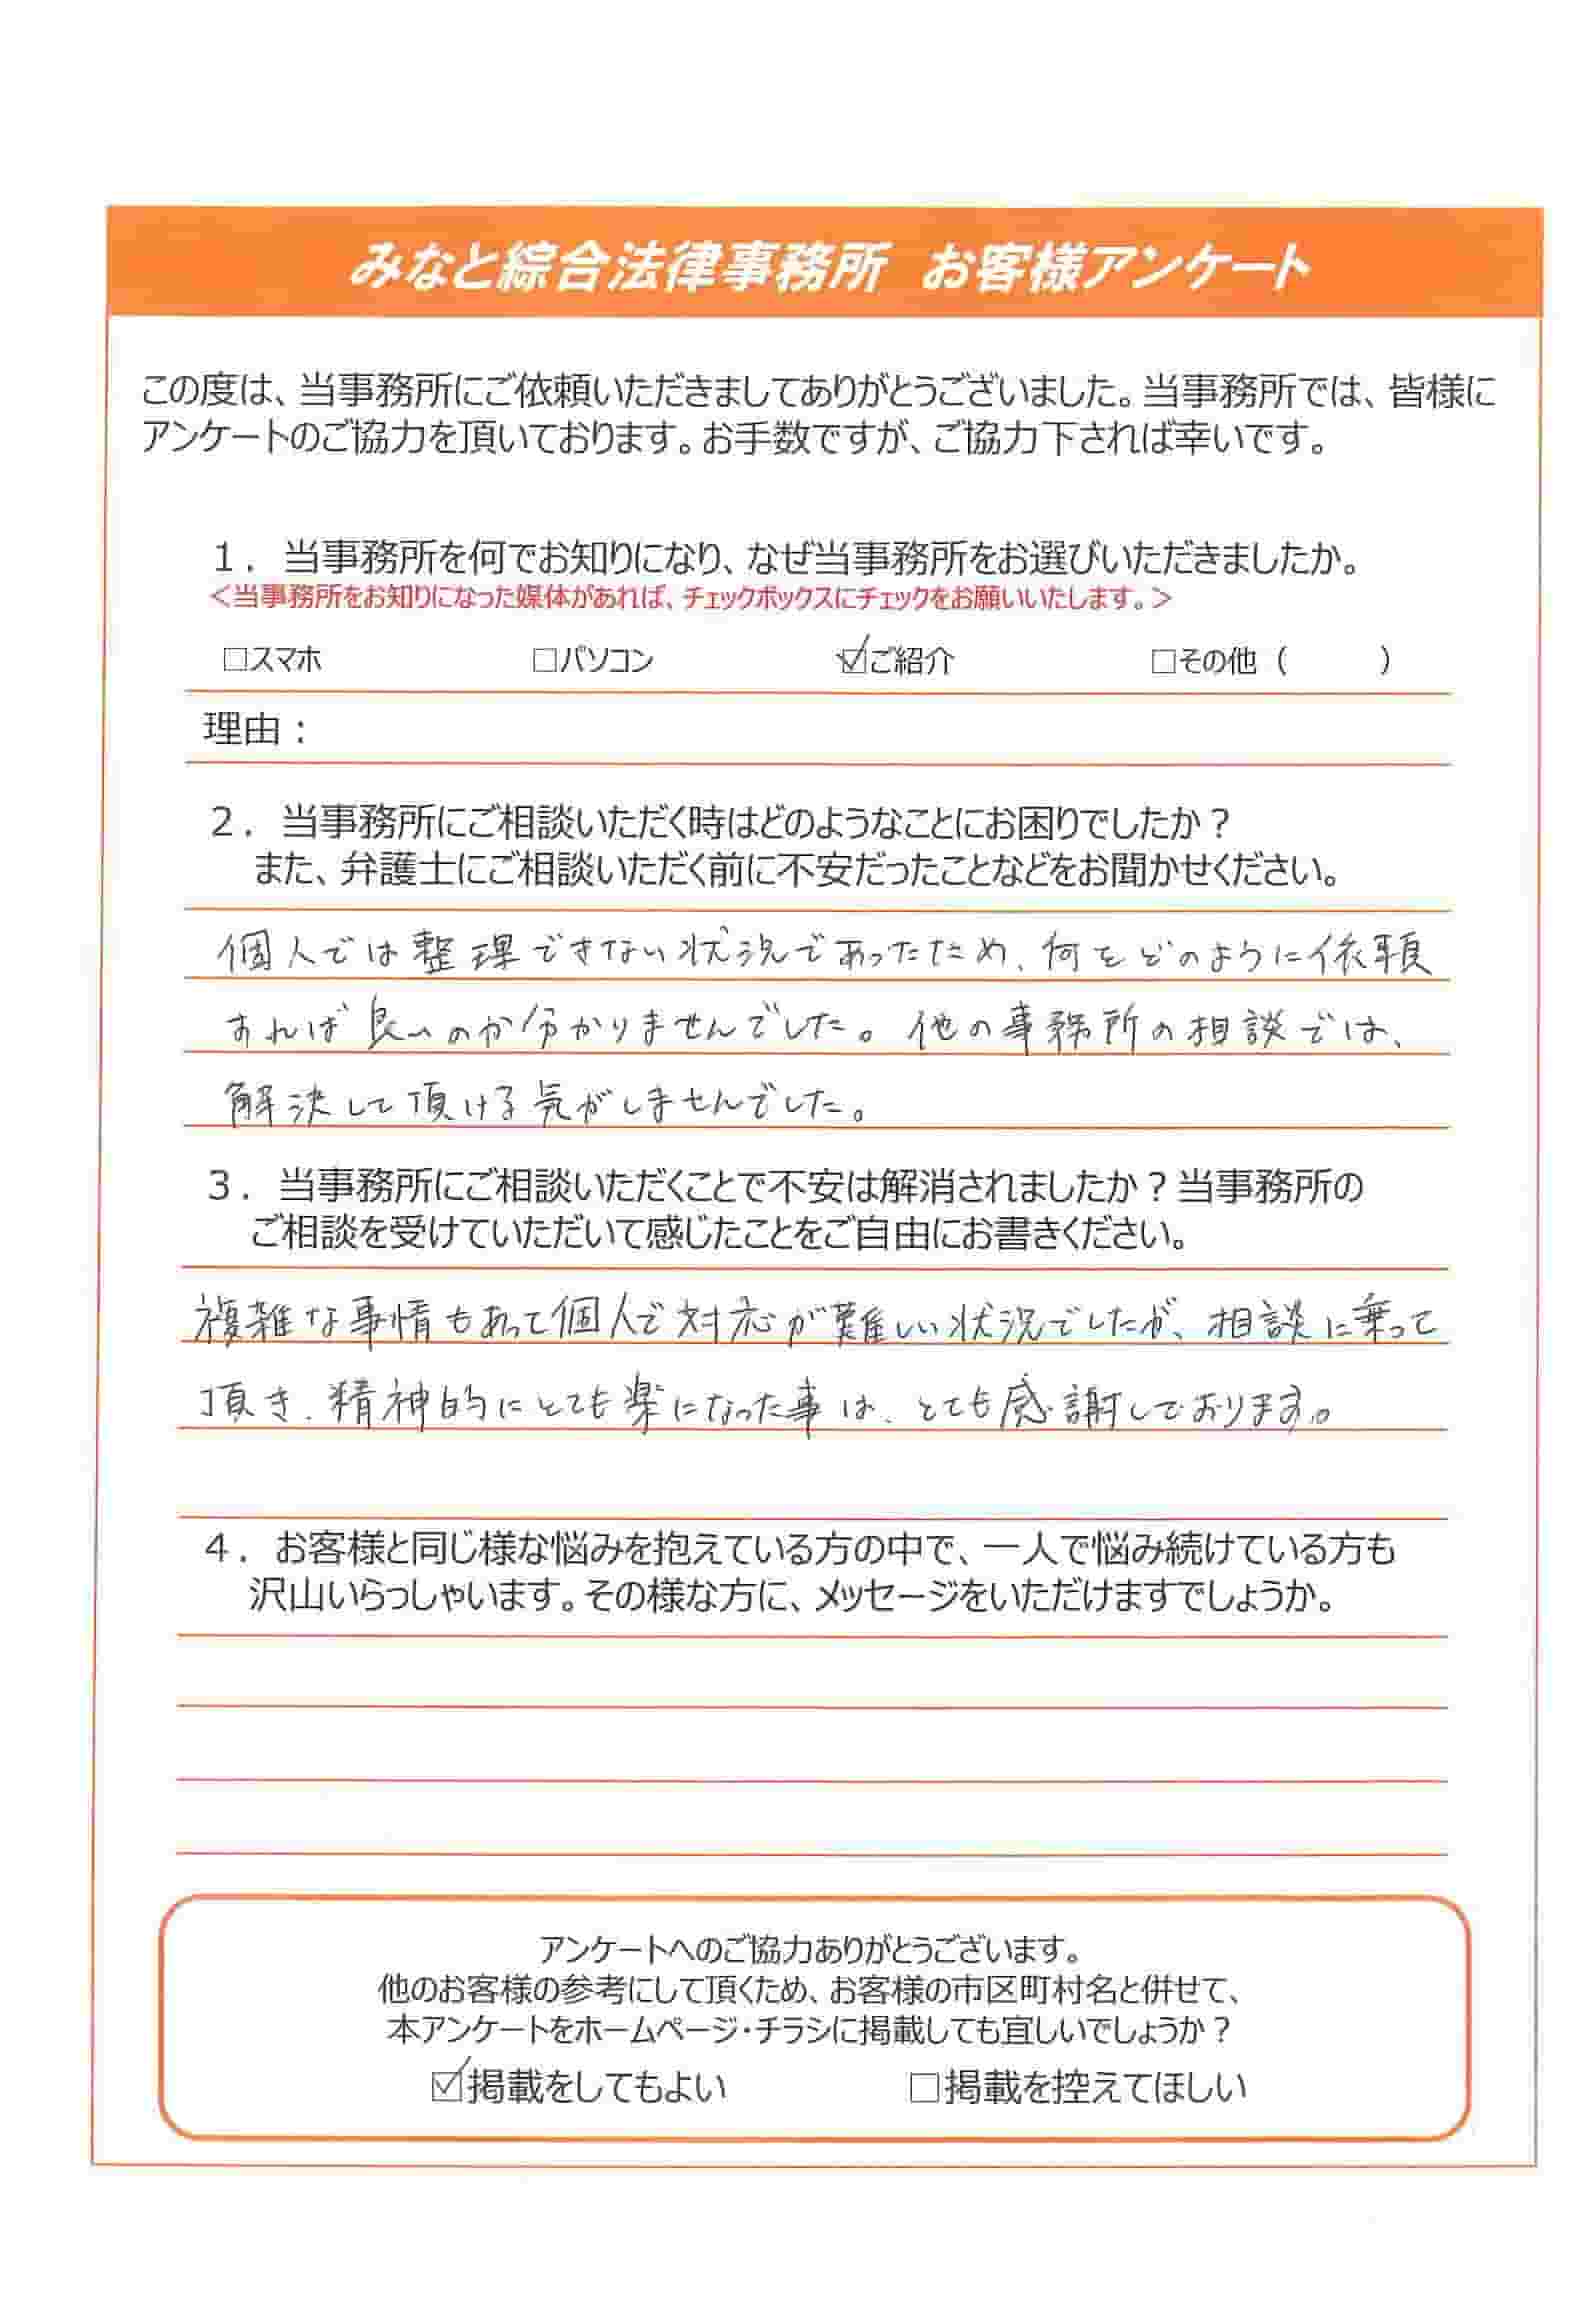 みなと綜合法律事務所　お客様アンケート
この度は、当事務所にご依頼いただきましてありがとうございました。当事務所では、皆様に
アンケートのご協力を頂いております。お手数ですが、ご協力下されば幸いです。
１．当事務所を何でお知りになり、なぜ当事務所をお選びいただきましたか。
＜当事務所をお知りになった媒体があれば、チェックボックスにチェックをお願いいたします。＞
□スマホ　□パソコン　☑ご紹介　□その他（　　　）
理由：
２．当事務所にご相談いただく時はどのようなことにお困りでしたか？
また、弁護士にご相談いただく前に不安だったことなどをお聞かせください。
個人では整理できない状況であったため、何をどのように依頼
すれば良いのか分かりませんでした。他の事務所の相談では、
解決して頂ける気がしませんでした。
３．当事務所にご相談いただくことで不安は解消されましたか？当事務所の
ご相談を受けていただいて感じたことをご自由にお書きください。
複雑な事情もあって個人で対応が難しい状況でしたが、相談に乗って
頂き、精神的にとても楽になった事は、とても感謝しております。
４．お客様と同じ様な悩みを抱えている方の中で、一人で悩み続けている方も
沢山いらっしゃいます。その様な方に、メッセージをいただけますでしょうか。
アンケートへのご協力ありがとうございます。
他のお客様の参考にして頂くため、お客様の市区町村名と併せて、
本アンケートをホームページ・チラシに掲載しても宜しいでしょうか？
☑掲載をしてもよい　□掲載を控えてほしい